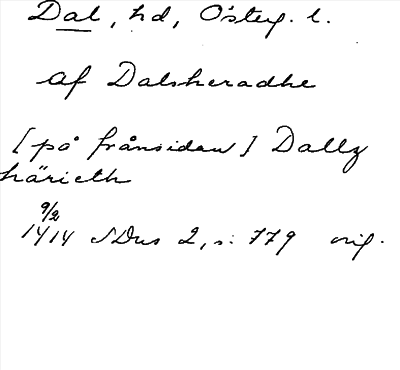 Dal, hd, Österg. l.
af Dalsheradhe
[på frånsidan] Dallz
härieth
9/2
1414 SDns 2, s: 779 orig.